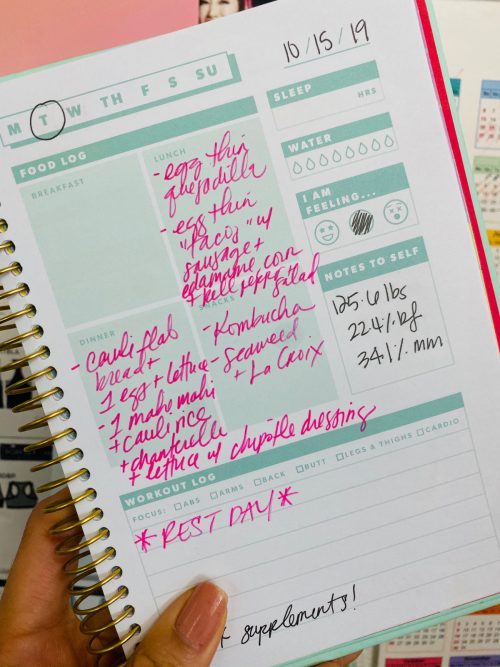 10/15/19
M T W TH F S SU
SLEEP
HRS
FOOD LOG
BREAKFAST
LUNCH
- egg thin
quesadilla
- egg thin
"tacos" w/
sausage +
edamame corn
+ bell pepp salad
WATER
I AM
FEELING...
NOTES TO SELF
125.6 lbs
22.4% bf
34.1% mm
DINNER
- cauliflat
bread +
1 egg + lettuce
- 1 mahi mahi
+ caulirice
+ chanterelle
+ lettuce w/ chipotle dressing
SNACKS
- Kombucha
- Seaweed
+ La Croix
WORKOUT LOG
FOCUS: ABS ARMS BACK BUTT LEGS & THIGHS CARDIO
*REST DAY*
supplements!